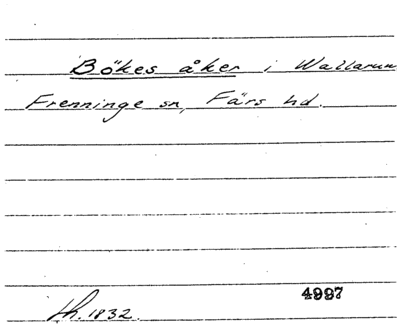 Bökes åker i Wallarum
Frenninge sn, Färs hd.
4997
lh. 1832.